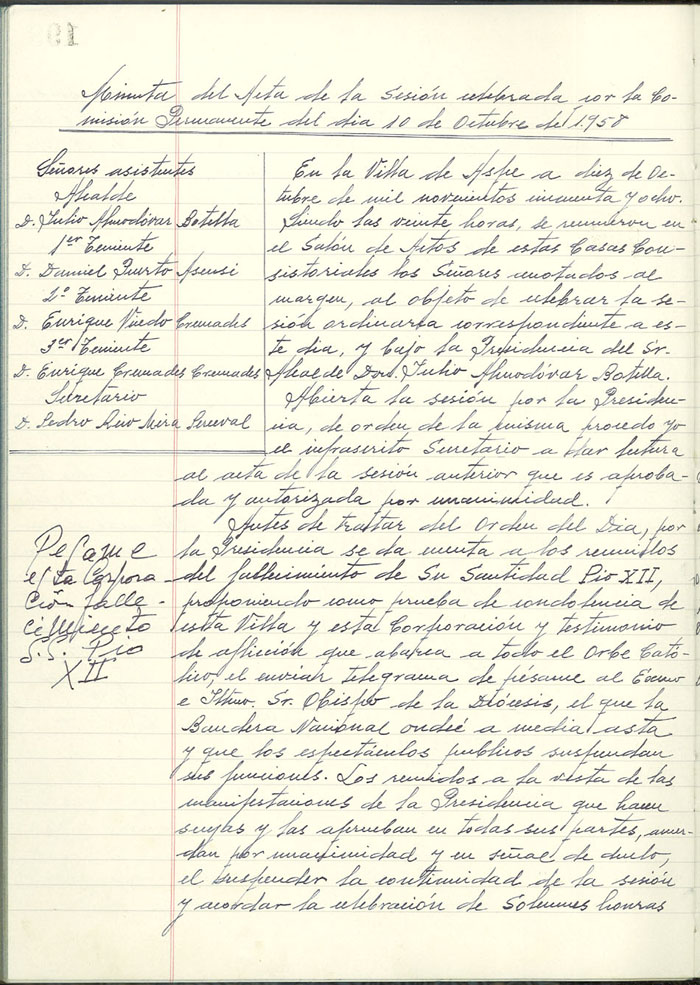 19
Minuta del Acta de la Sesión celebrada por la Co-
misión Permanente del dia 10 de Octubre de 1.958
Señores asistentes
Alcalde
D. Julio Almodóvar Botella
1er Teniente
D. Daniel Puerto Asensi
2º Teniente
D. Enrique Viedo Cremades
3er Teniente
D. Enrique Cremades Cremades
Secretario
D. Pedro Mira Perceval
En la Villa de Aspe a diez de Oc-
tubre de mil novecientos cincuenta y ocho.
Siendo las veinte horas, se reunieron en
el Salón de Actos de estas Casas Con-
sistoriales los Señores anotados al
margen, al objeto de celebrar la se-
sión ordinaria correspondiente a es-
te dia, y bajo la Presidencia del Sr.
Alcalde Don. Julio Almodóvar Botella.
Abierta la sesión por la Presiden-
cia, de orden de la misma procedo yo
el infrascrito Secretario a dar lectura
al acta de la sesión anterior que es aproba-
da y autorizada por unanimidad.
Pesame
esta Corpora-
ción falle-
cimiento
S.S. Pio
XII
Antes de tratar del Orden del Dia, por
la Presidencia se da cuenta a los reunidos
del fallecimiento de Su Santidad Pio XII,
proponiendo como prueba de condolencia de
esta Villa y esta Corporación y testimonio
de aflicción que abarca a todo el Orbe Cató-
lico, el enviar telegrama de pésame al Excmo
e Iltmo. Sr. Obispo de la Diócesis, el que la
Bandera Nacional ondeé a media asta
y que los espectáculos publicos suspendan
sus funciones. Los reunidos a la vista de las
manifestaciones de la Presidencia que hacen
suyas y las aprueban en todas sus partes, acuer-
dan por unanimidad y en señal de duelo,
el suspender la continuidad de la sesión
y acordar la celebración de Solemnes honras